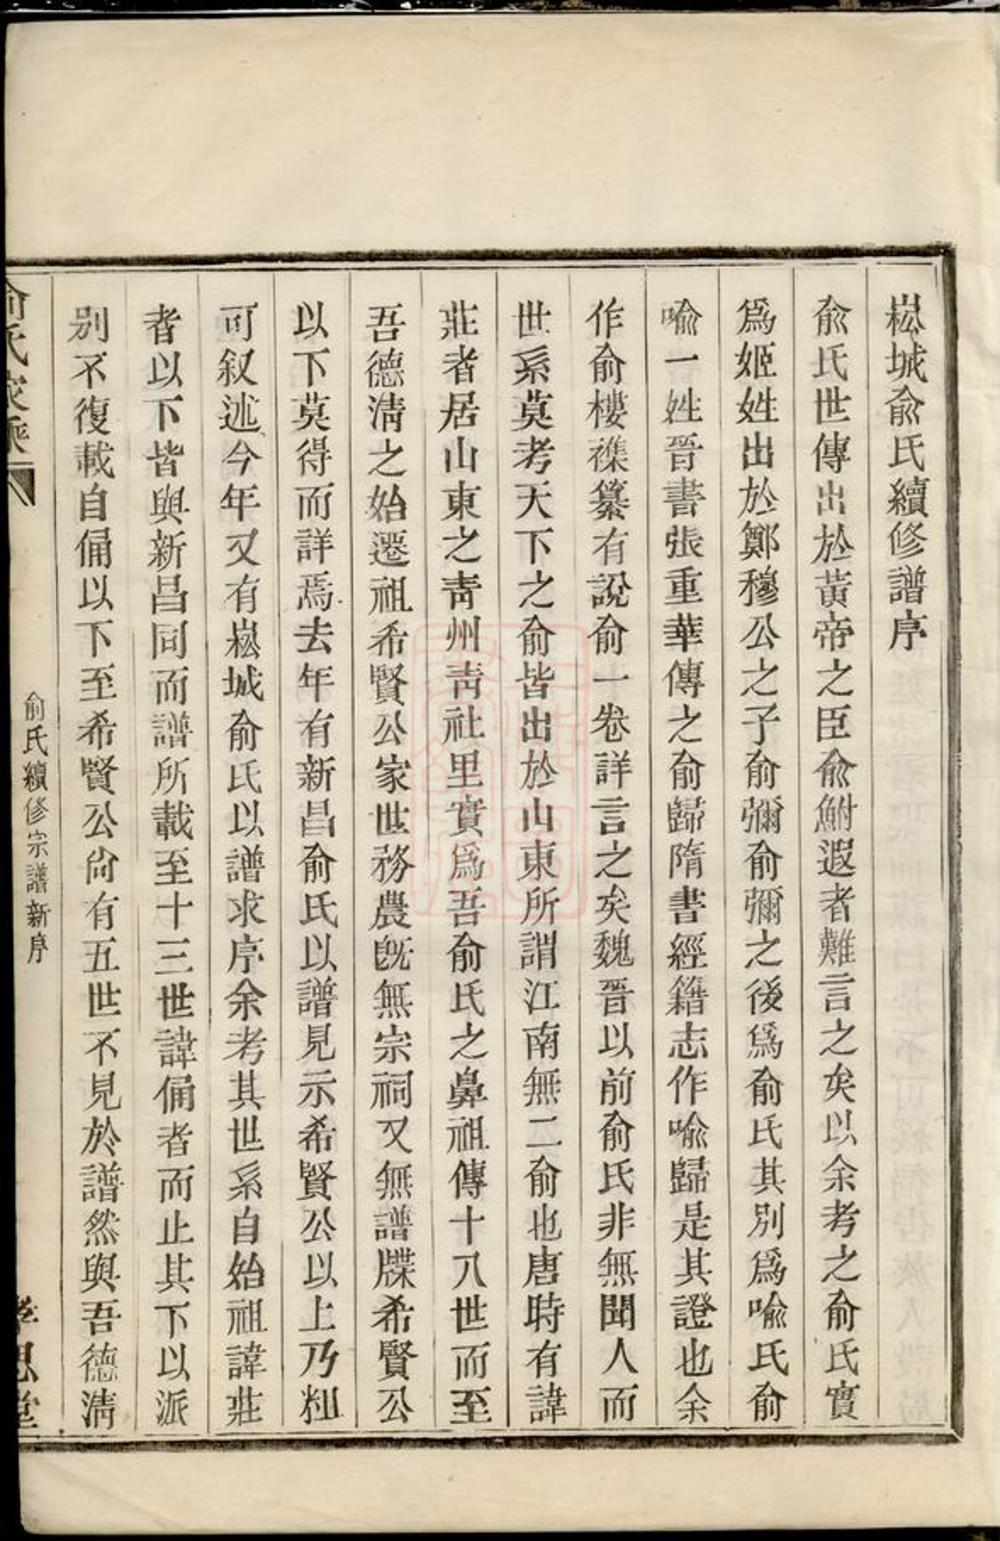 崧城俞氏續修譜序
俞氏世傳出於黃帝之臣俞鮒遐者難言之矣以余考之俞氏實
爲姬姓出於鄭穆公之子俞彌俞彌之後爲俞氏其別爲喻氏俞
喻一姓晉書張重華傳之俞歸隋書經籍志作喻歸是其證也余
作俞樓襍纂有說俞一卷詳言之矣魏晉以前俞氏非無聞人而
世系莫考天下之俞皆出於山東所謂江南無二俞也唐時有諱
莊者居山東之靑州靑社里實爲吾俞氏之鼻祖傳十八世而至
吾德淸之始遷祖希賢公家世務農旣無宗祠又無譜牒希賢公
以下莫得而詳焉去年有新昌俞氏以譜見示希賢公以上乃粗
可叙述今年又有崧城俞氏以譜求序余考其世系自始祖諱莊
者以下皆與新昌同而譜所載至十三世諱俑者而止其下以派
別不復載自俑以下至希賢公尙有五世不見於譜然與吾德淸
俞氏家乘
俞氏續修宗譜新序
孝思堂